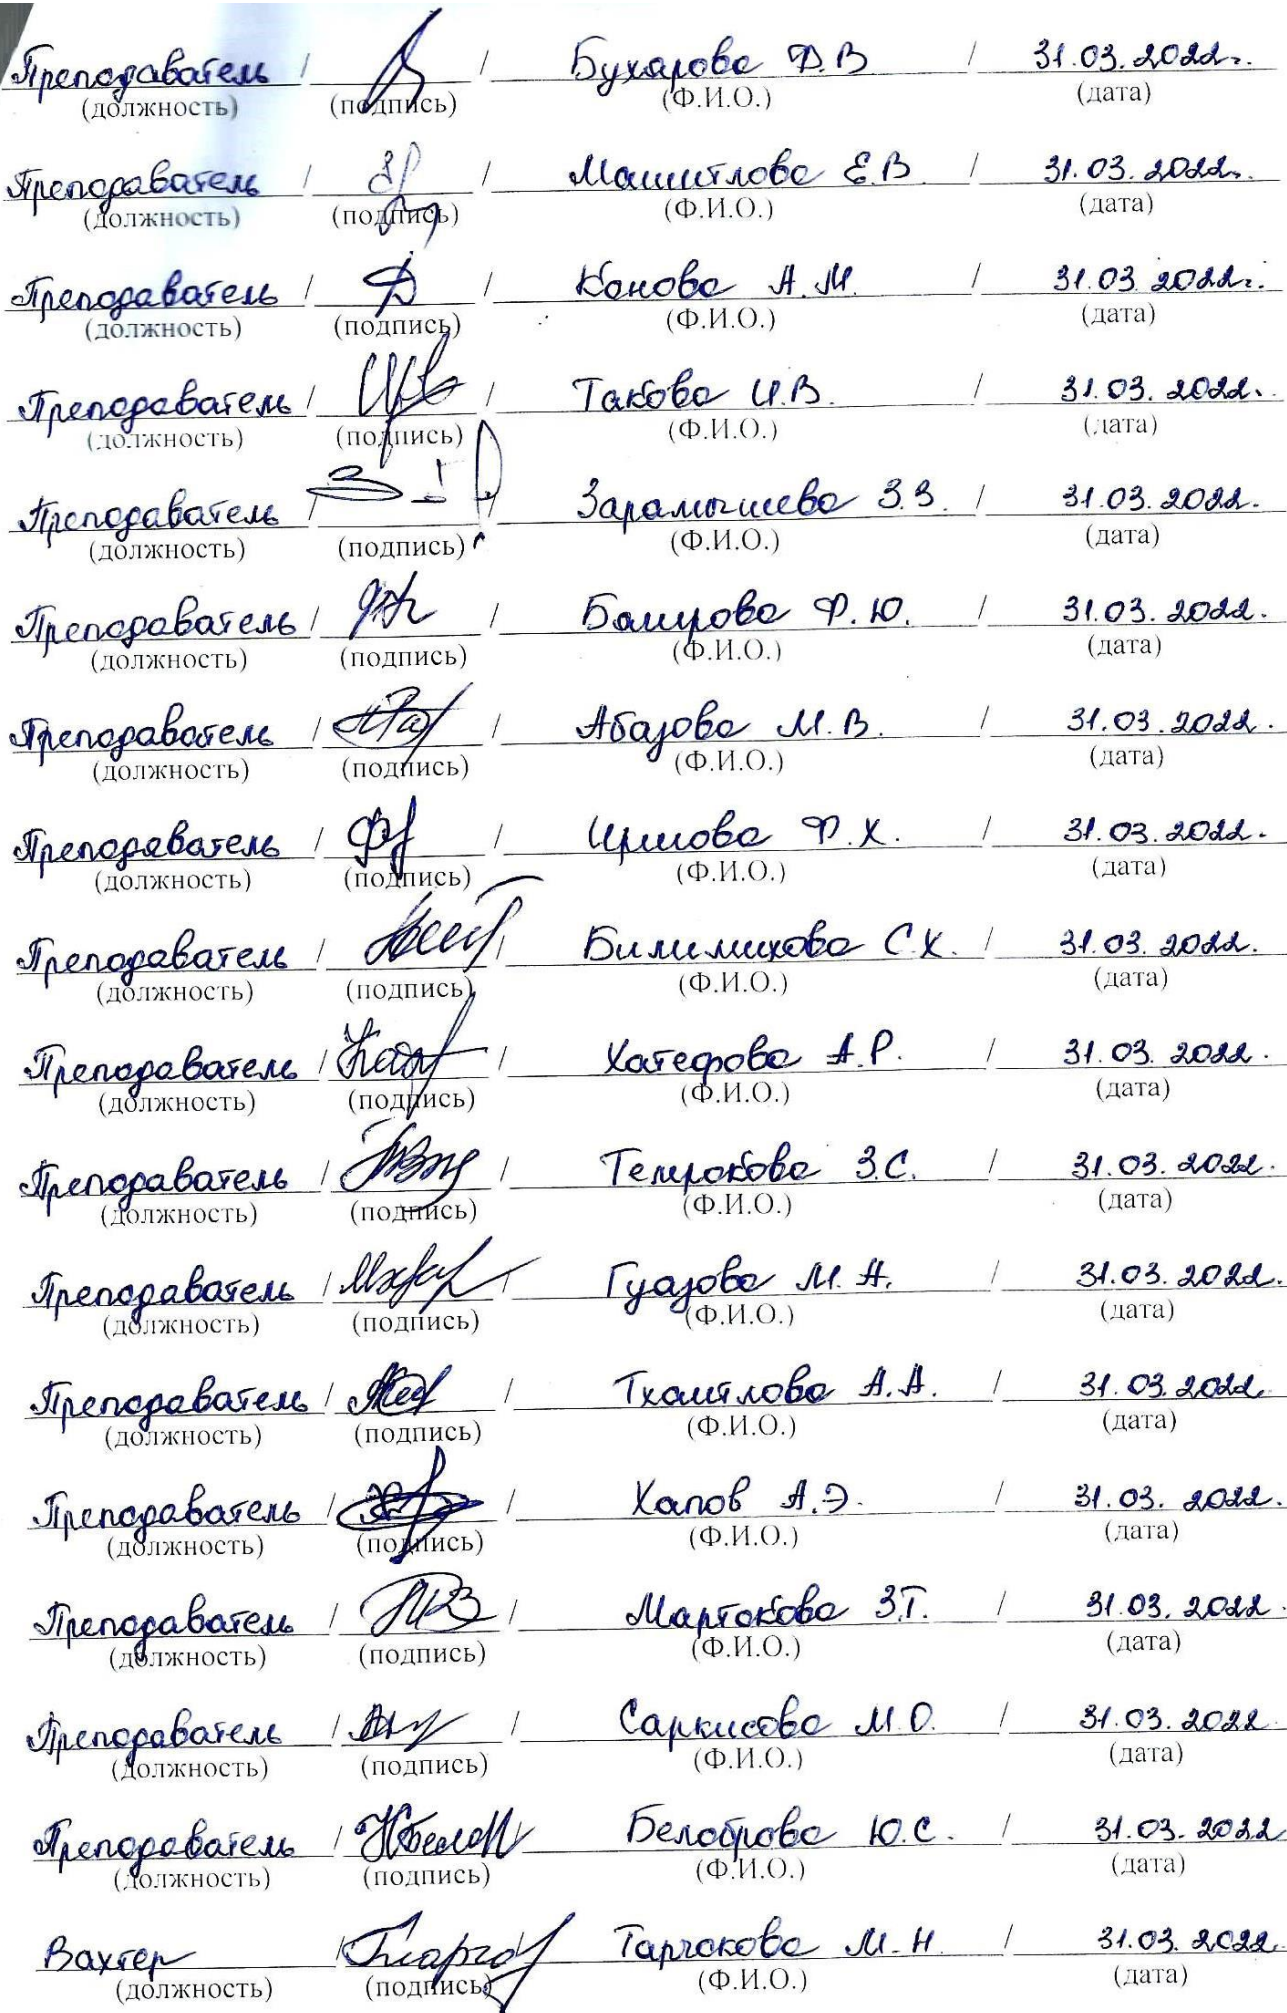 Преподаватель / / Бухарова Ф.В / 31.03.2022г.
(должность) (подпись) (Ф.И.О.) (дата)
Преподаватель / / Машитлова Е.В / 31.03.2022г.
(должность) (подпись) (Ф.И.О.) (дата)
Преподаватель / / Канова А.М. / 31.03.2022г.
(должность) (подпись) (Ф.И.О.) (дата)
Преподаватель / / Такова И.В. / 31.03.2022.
(должность) (подпись) (Ф.И.О.) (дата)
Преподаватель / Зарамышева З.З. / 31.03.2022.
(должность) (подпись) (Ф.И.О.) (дата)
Преподаватель / / Баирова Ф.Ю. / 31.03.2022.
(должность) (подпись) (Ф.И.О.) (дата)
Преподаватель / / Абазова М.В. / 31.03.2022.
(должность) (подпись) (Ф.И.О.) (дата)
Преподаватель / / Ф.Х. / 31.03.2022.
(должность) (подпись) (Ф.И.О.) (дата)
Преподаватель / / Билимихова С.Х. / 31.03.2022.
(должность) (подпись) (Ф.И.О.) (дата)
Преподаватель / / Хатефова А.Р. / 31.03.2022.
(должность) (подпись) (Ф.И.О.) (дата)
Преподаватель / / Темрокова З.С. / 31.03.2022.
(должность) (подпись) (Ф.И.О.) (дата)
Преподаватель / / Гуазова М.А. / 31.03.2022.
(должность) (подпись) (Ф.И.О.) (дата)
Преподаватель / / Тхаитлова А.А. / 31.03.2022.
(должность) (подпись) (Ф.И.О.) (дата)
Преподаватель / / Хапов А.Э. / 31.03.2022.
(должность) (подпись) (Ф.И.О.) (дата)
Преподаватель / / Мартокова З.Т. / 31.03.2022.
(должность) (подпись) (Ф.И.О.) (дата)
Преподаватель / / Саркисова М.О. / 31.03.2022.
(должность) (подпись) (Ф.И.О.) (дата)
Преподаватель / / Белоброва Ю.С. / 31.03.2022
(должность) (подпись) (Ф.И.О.) (дата)
Вахтер / / Тарчокова М.Н. / 31.03.2022.
(должность) (подпись) (Ф.И.О.) (дата)